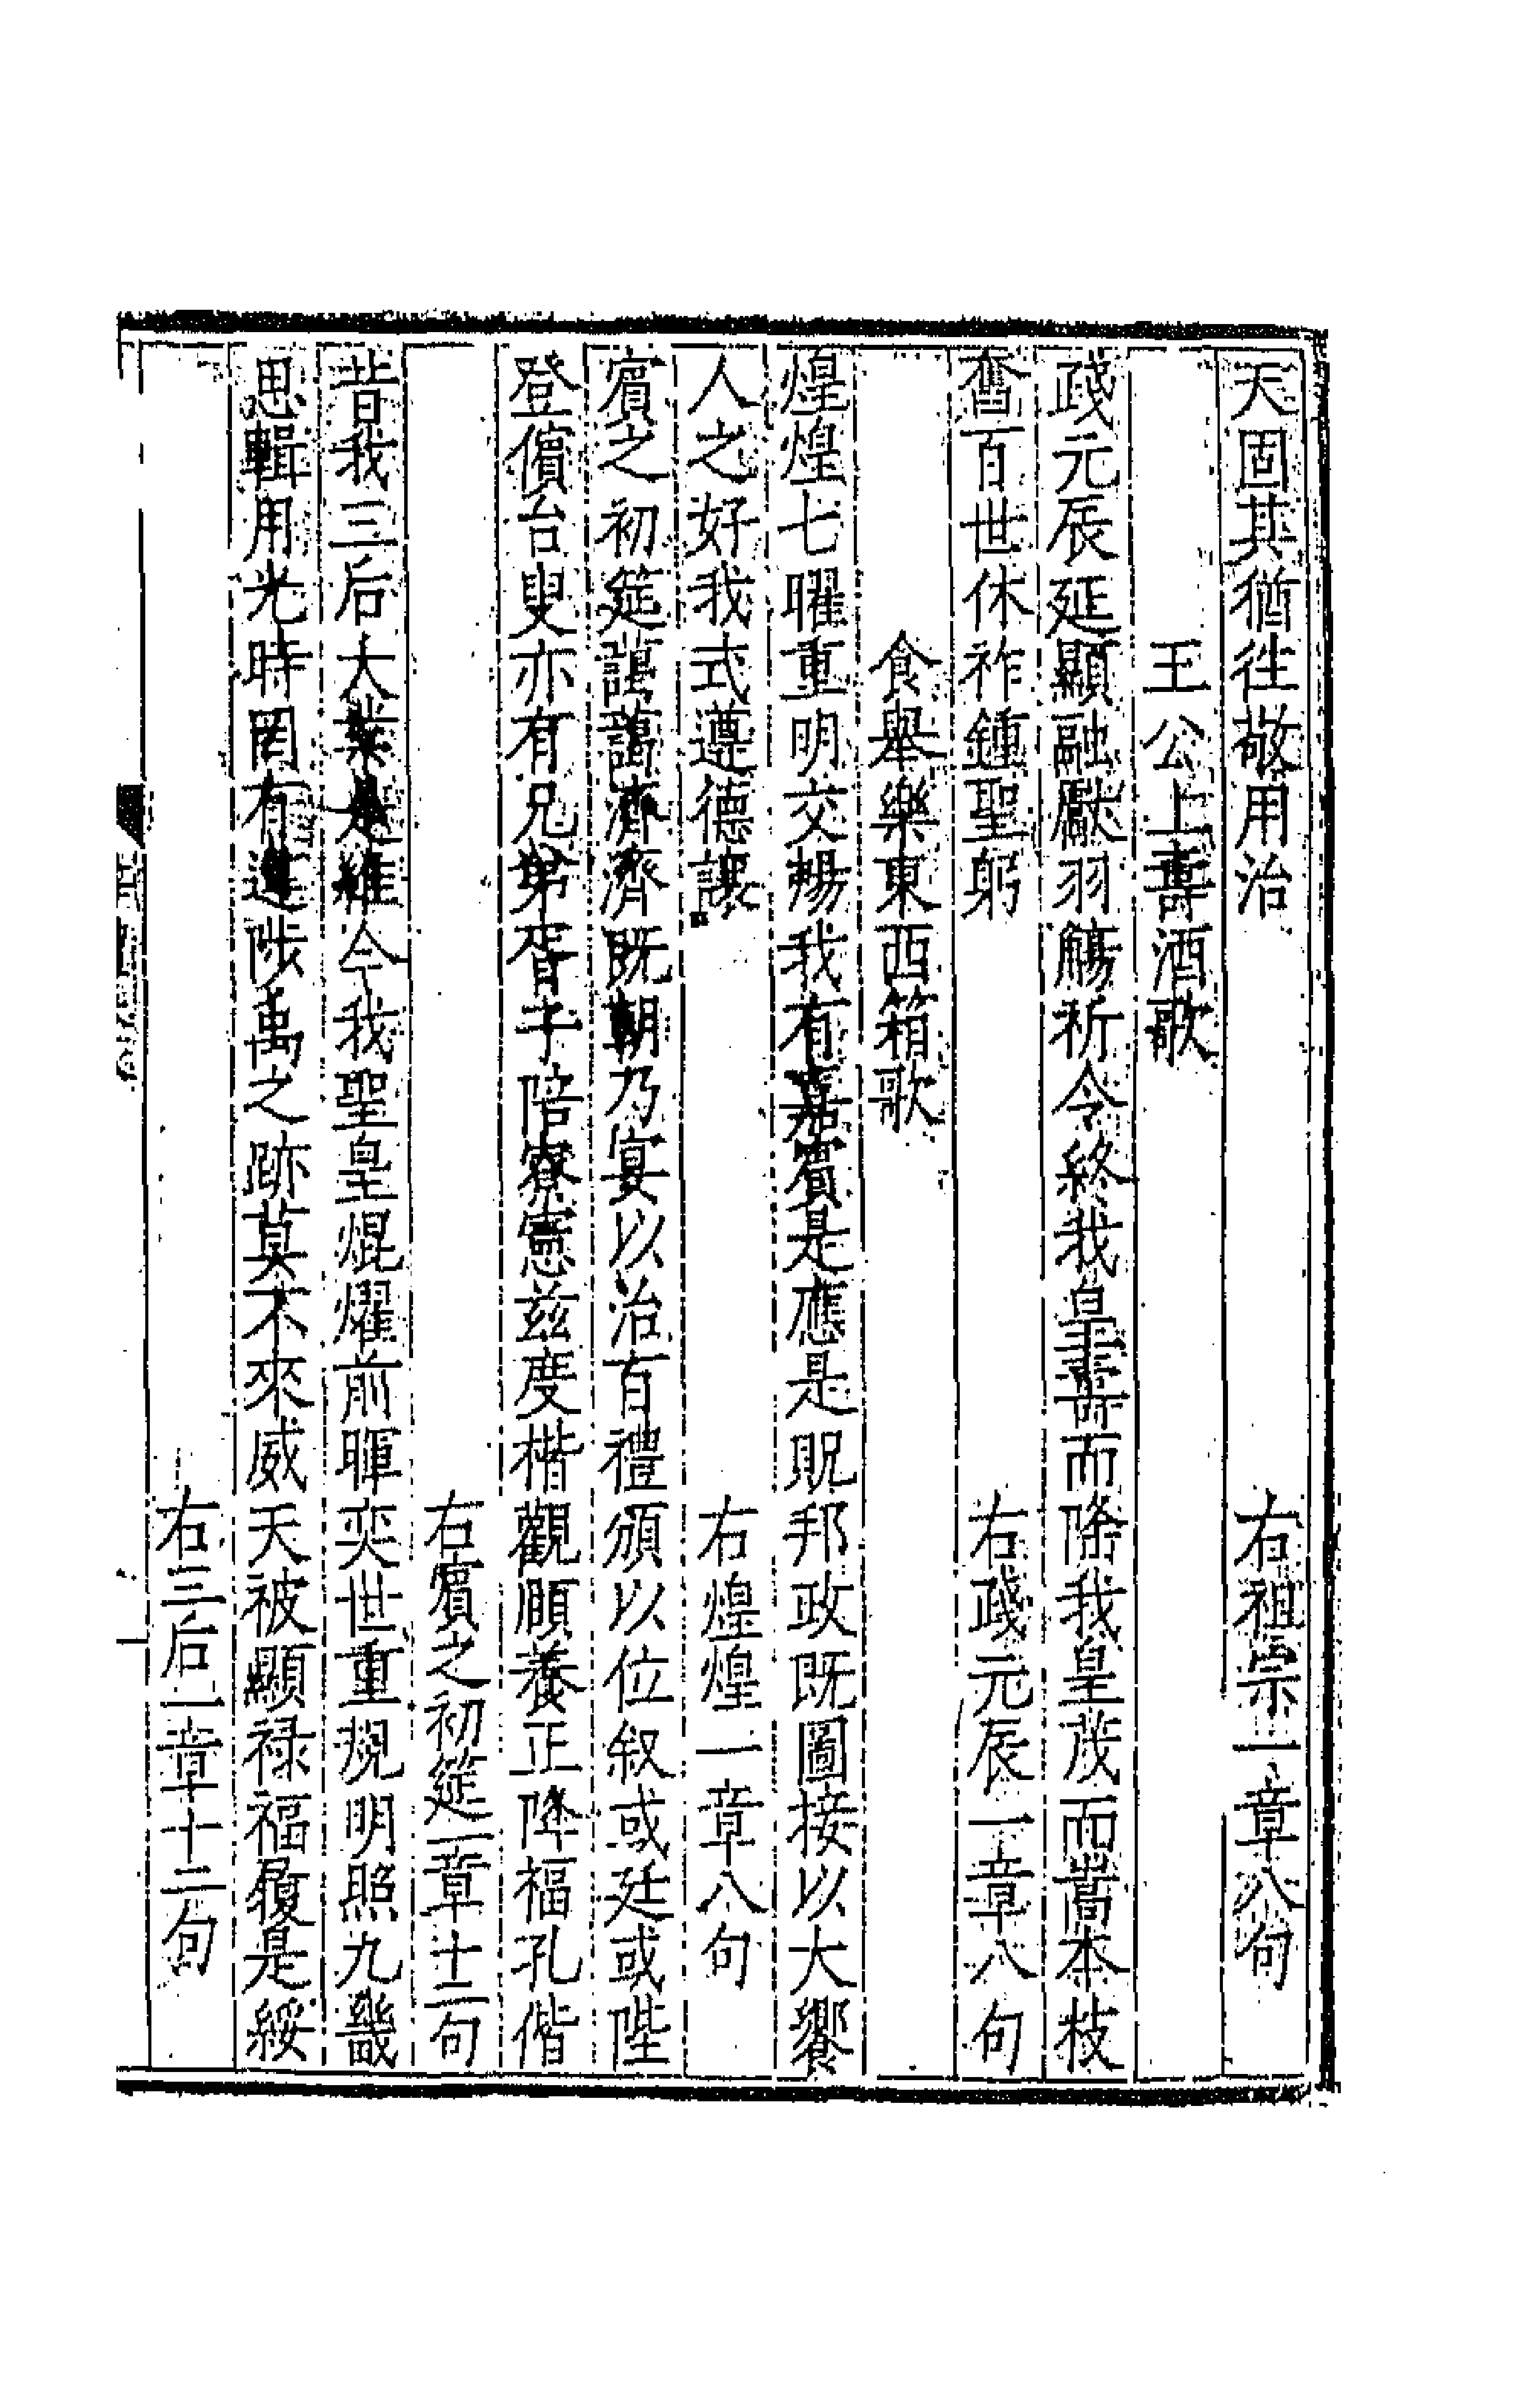 天固其猶徃敬用治　右祖宗一章八句
王公上壽酒歌
踐元辰延顯融獻羽觴祈令終我皇壽而隆我皇茂而嵩本枝
奮百世休祚鍾聖躬　右踐元辰一章八句
食舉樂東西箱歌
煌煌七曜重明交暢我有嘉賓是應是貺邦政既圖接以大饗
人之好我式遵德讓　右煌煌一章八句
賓之初筵藹藹濟濟既朝乃宴以治百禮頒以位叙或廷或陛
登儐台叟亦有兄弟胥子陪寮憲兹度楷觀頤養正降福孔偕
右賓之初筵一章十二句
昔我三后大業是維今我聖皇焜燿前暉奕世重規明照九畿
思輯用光時罔有違陟禹之跡莫不來威天被顯禄福履是綏
右三后一章十二句